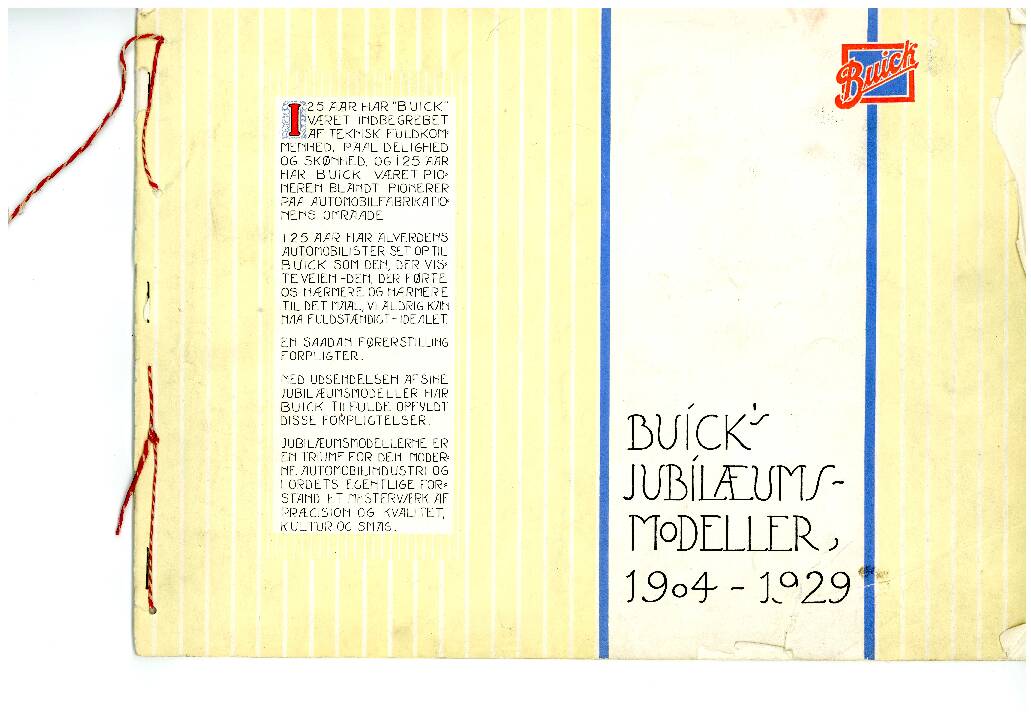 I 25 AAR HAR "BUICK"
VÆRET INDBEGREBET
AF TEKNISK FULDKOM-
MENHED, PAALDELIGHED
OG SKØNHED, OG I 25 AAR
HAR BUICK VÆRET PIO-
NEREN BLANDT PIONERER
PAA AUTOMOBILFABRIKATIO-
NENS OMRAADE
I 25 AAR HAR ALVERDENS
AUTOMOBILISTER SET OP TIL
BUICK SOM DEN, DER VIS-
TE VEJEN - DEN, DER FØRTE
OS NÆRMERE OG NÆRMERE
TIL DET MAAL, VI ALDRIG KAN
NAA FULDSTÆNDIGT - IDEALET.
EN SAADAN FØRERSTILLING
FORPLIGTER.
MED UDSENDELSEN AF SINE
JUBILÆUMSMODELLER HAR
BUICK TIL FULDE OPFYLDT
DISSE FORPLIGTELSER.
JUBILÆUMSMODELLERNE ER
EN TRIUMF FOR DEN MODER-
NE AUTOMOBILINDUSTRI OG
I ORDETS EGENTLIGE FOR-
STAND ET MESTERVÆRK AF
PRÆCISION OG KVALITET,
KULTUR OG SMAG.
Buick
BUICK'S
JUBILÆUMS-
MODELLER,
1904 - 1929